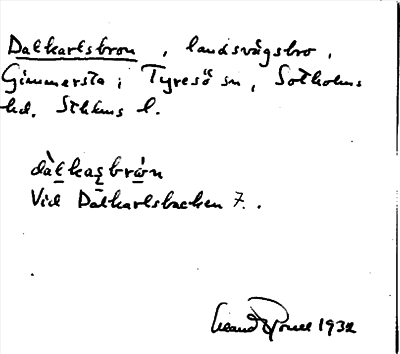 Dalkarlsbron, landsvägsbro,
Gimmersta i Tyresö sn, Sotholms
hd, Sthlms l.
dàlkaṣbrón
Vid Dalkarlsbacken 7.
1932